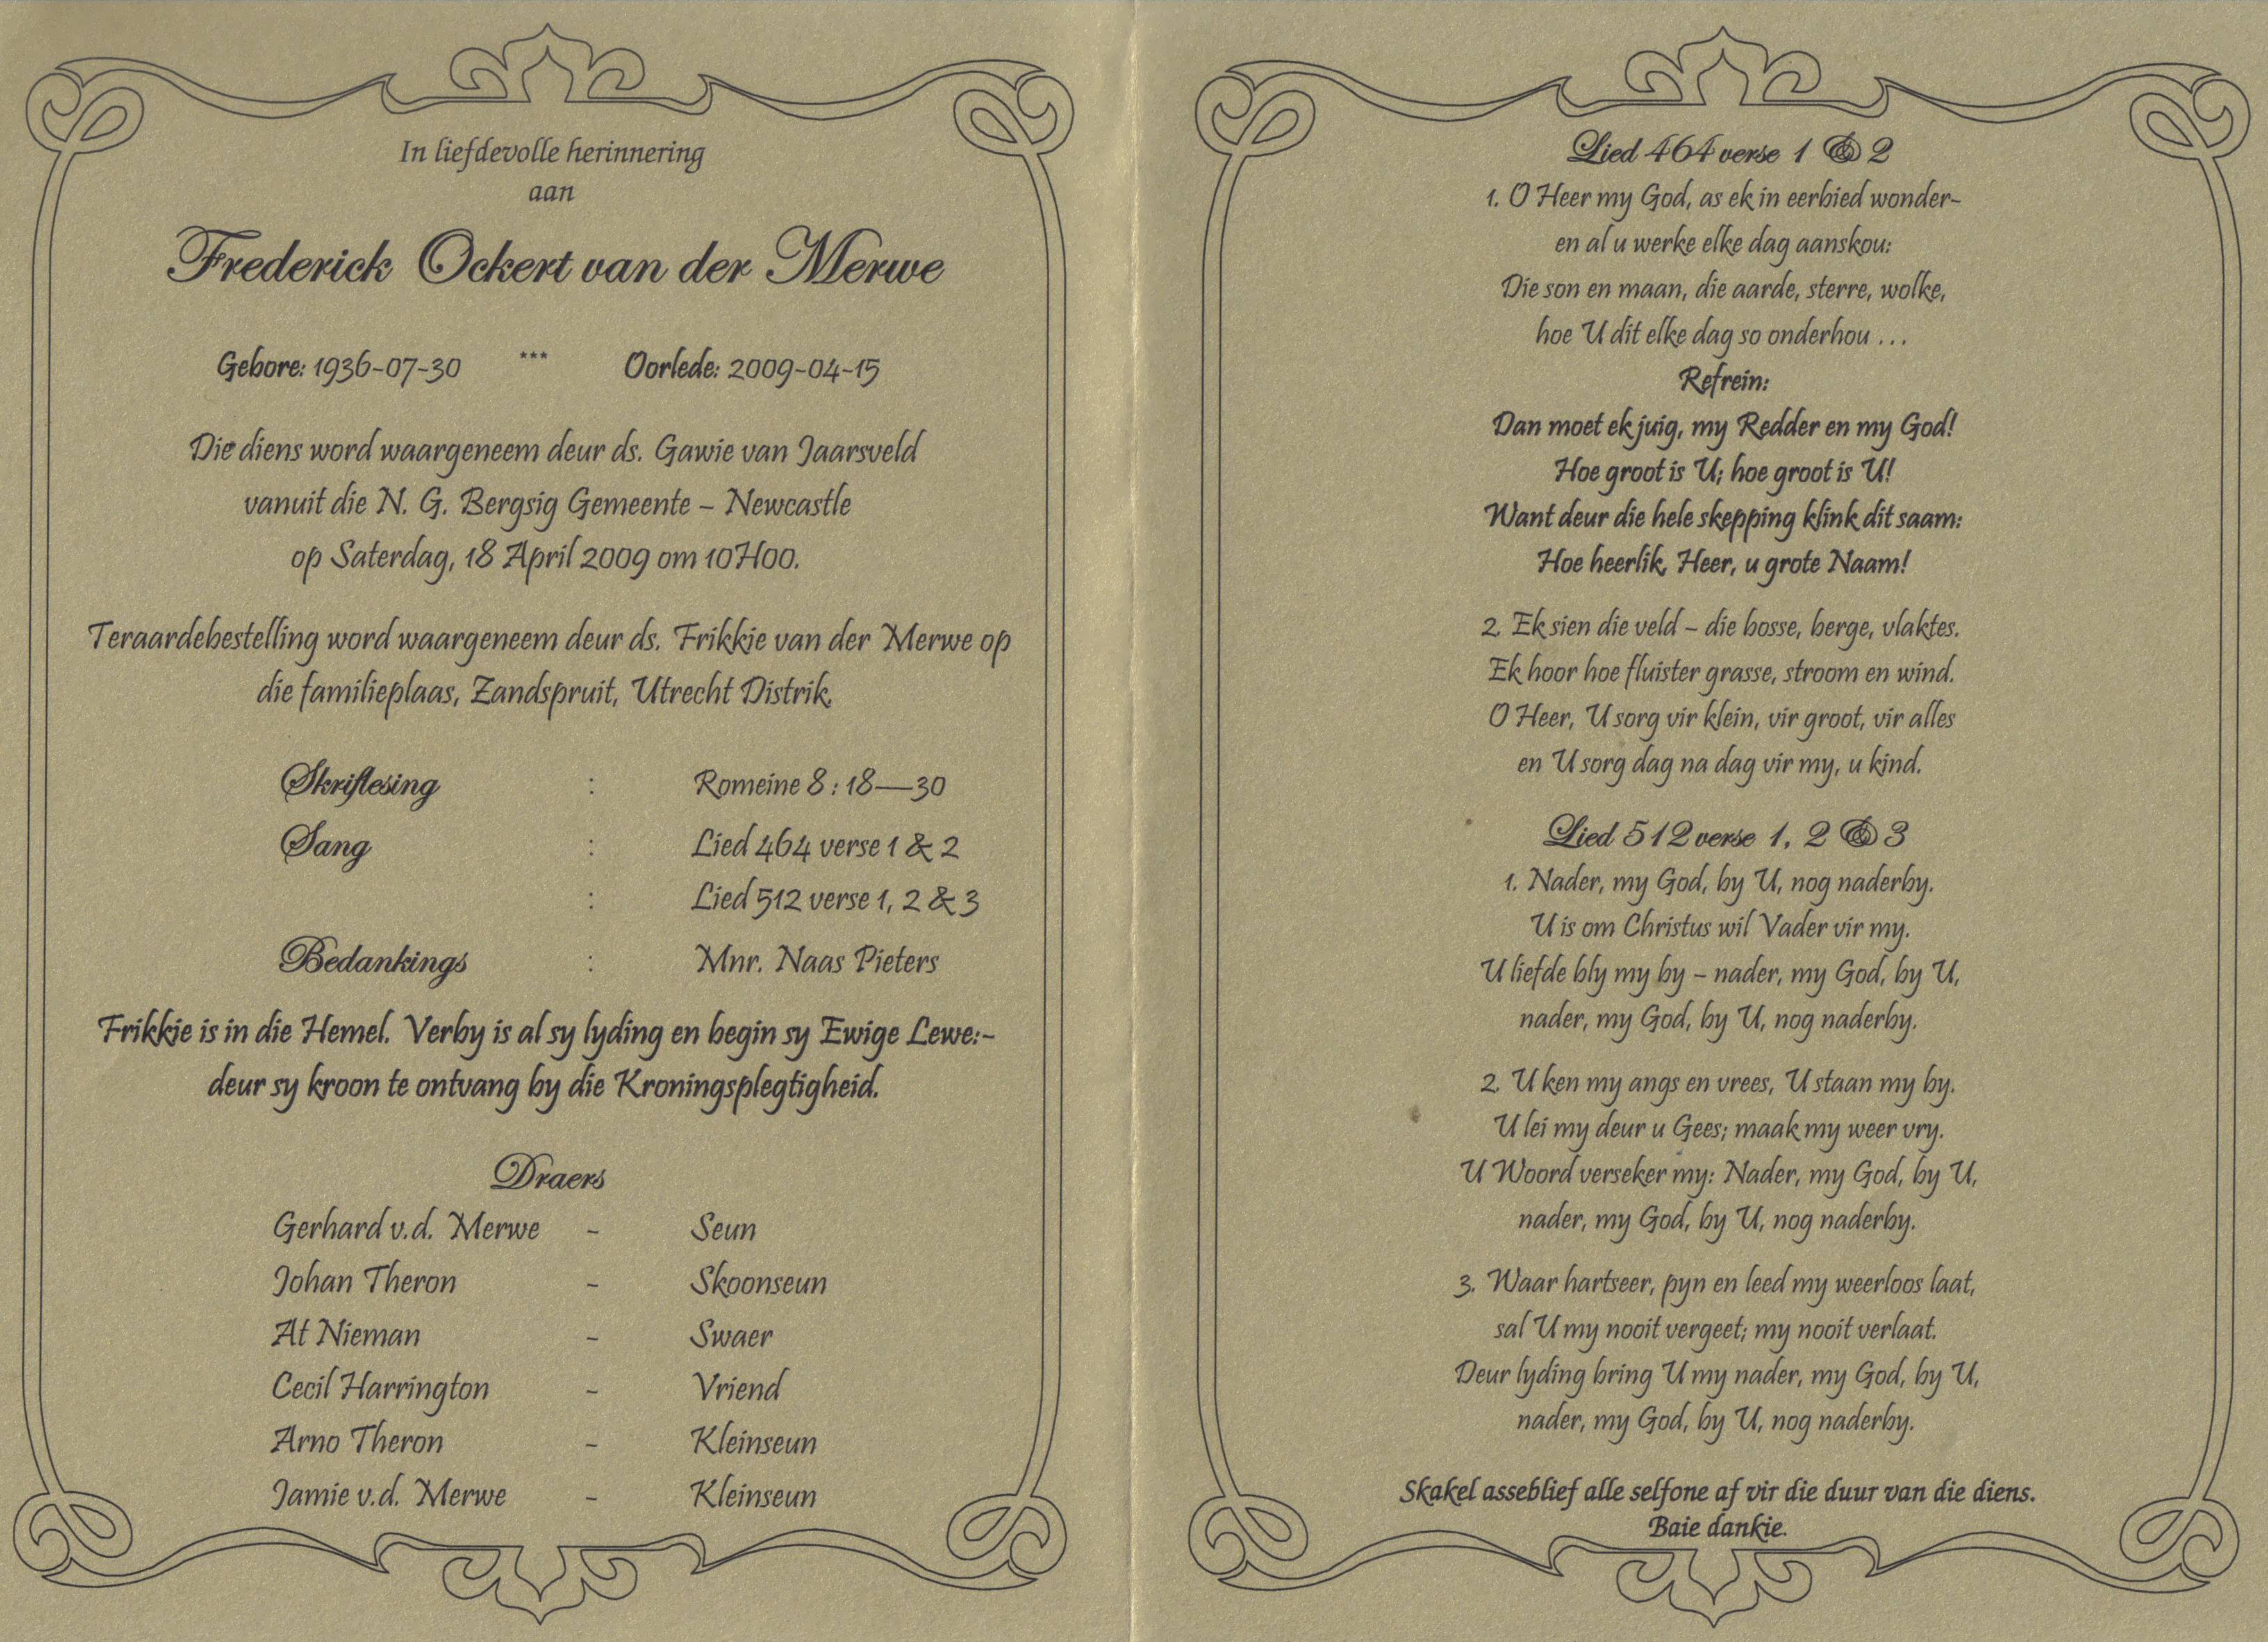 In liefdevolle herinnering
aan
Frederick Ockert van der Merwe
Gebore: 1936-07-30 *** Oorlede: 2009-04-15
Die diens word waargeneem deur ds. Gawie van Jaarsveld
vanuit die N. G. Bergsig Gemeente – Newcastle
op Saterdag, 18 April 2009 om 10H00.
Teraardebestelling word waargeneem deur ds. Frikkie van der Merwe op
die familieplaas, Zandspruit, Utrecht Distrik.
Skriflesing : Romeine 8 : 18—30
Sang : Lied 464 verse 1 & 2
: Lied 512 verse 1, 2 & 3
Bedankings : Mnr. Naas Pieters
Frikkie is in die Hemel. Verby is al sy lyding en begin sy Ewige Lewe:-
deur sy kroon te ontvang by die Kroningsplegtigheid.
Draers
Gerhard v.d. Merwe - Seun
Johan Theron - Skoonseun
At Nieman - Swaer
Cecil Harrington - Vriend
Arno Theron - Kleinseun
Jamie v.d. Merwe - Kleinseun
Lied 464 verse 1 & 2
1. O Heer my God, as ek in eerbied wonder-
en al u werke elke dag aanskou:
Die son en maan, die aarde, sterre, wolke,
hoe U dit elke dag so onderhou …
Refrein:
Dan moet ek juig, my Redder en my God!
Hoe groot is U; hoe groot is U!
Want deur die hele skepping klink dit saam:
Hoe heerlik, Heer, u grote Naam!
2. Ek sien die veld – die bosse, berge, vlaktes.
Ek hoor hoe fluister grasse, stroom en wind.
O Heer, U sorg vir klein, vir groot, vir alles
en U sorg dag na dag vir my, u kind.
Lied 512 verse 1, 2 & 3
1. Nader, my God, by U, nog naderby.
U is om Christus wil Vader vir my.
U liefde bly my by – nader, my God, by U,
nader, my God, by U, nog naderby.
2. U ken my angs en vrees, U staan my by.
U lei my deur u Gees; maak my weer vry.
U Woord verseker my: Nader, my God, by U,
nader, my God, by U, nog naderby.
3. Waar hartseer, pyn en leed my weerloos laat,
sal U my nooit vergeet; my nooit verlaat.
Deur lyding bring U my nader, my God, by U,
nader, my God, by U, nog naderby.
Skakel asseblief alle selfone af vir die duur van die diens.
Baie dankie.